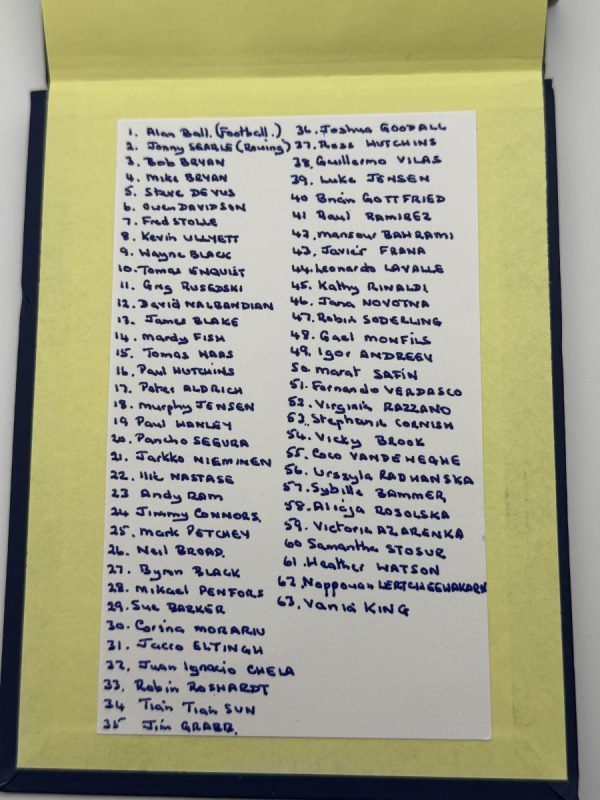 1. Alan Ball. (Football.)
2. Jonny SEARLE (Rowing)
3. Bob BRYAN
4. Mike BRYAN
5. Steve DEVUS
6. Owen DAVIDSON
7. Fred STOLLE
8. Kevin ULLYETT
9. Wayne BLACK
10. Tomas ENQUIST
11. Greg RUSEDSKI
12. David NALBANDIAN
13. James BLAKE
14. Mardy FISH
15. Tomas HAAS
16. Paul HUTCHINS
17. Peter ALDRICH
18. Murphy JENSEN
19 Paul HANLEY
20. Pancho SEGURA
21. Jarkko NIEMINEN
22. Ilie NASTASE
23 Andy RAM
24 Jimmy CONNORS.
25. Mark PETCHEY
26. Neil BROAD.
27. Byron BLACK
28. Mikael PENFORS
29. Sue BARKER
30. Corina MORARIU
31. Jacco ELTINGH
32. Juan Ignacio CHELA
33. Robin ROSHARDT
34 Tian Tian SUN
35 Jim GRABB.
36. Joshua GOODALL
37. Ross HUTCHINS
38. Guillermo VILAS
39. Luke JENSEN
40 Brian GOTTFRIED
41 Raul RAMIREZ
42. Mansour BAHRAMI
43. Javier FRANA
44. Leonardo LAVALLE
45. Kathy RINALDI
46. Jana NOVOTNA
47. Robin SODERLING
48. Gael MONFILS
49. Igor ANDREEV
50. Marat SAFIN
51. Fernando VERDASCO
52. Virginia RAZZANO
53. Stephanie CORNISH
54. Vicky BROOK
55. Coco VANDEWEGHE
56. Urszyla RADWANSKA
57. Sybille BAMMER
58. Alicja ROSOLSKA
59. Victoria AZARENKA
60 Samantha STOSUR
61. Heather WATSON
62. Noppawan LERTCHEEWAKARN
63. Vania KING